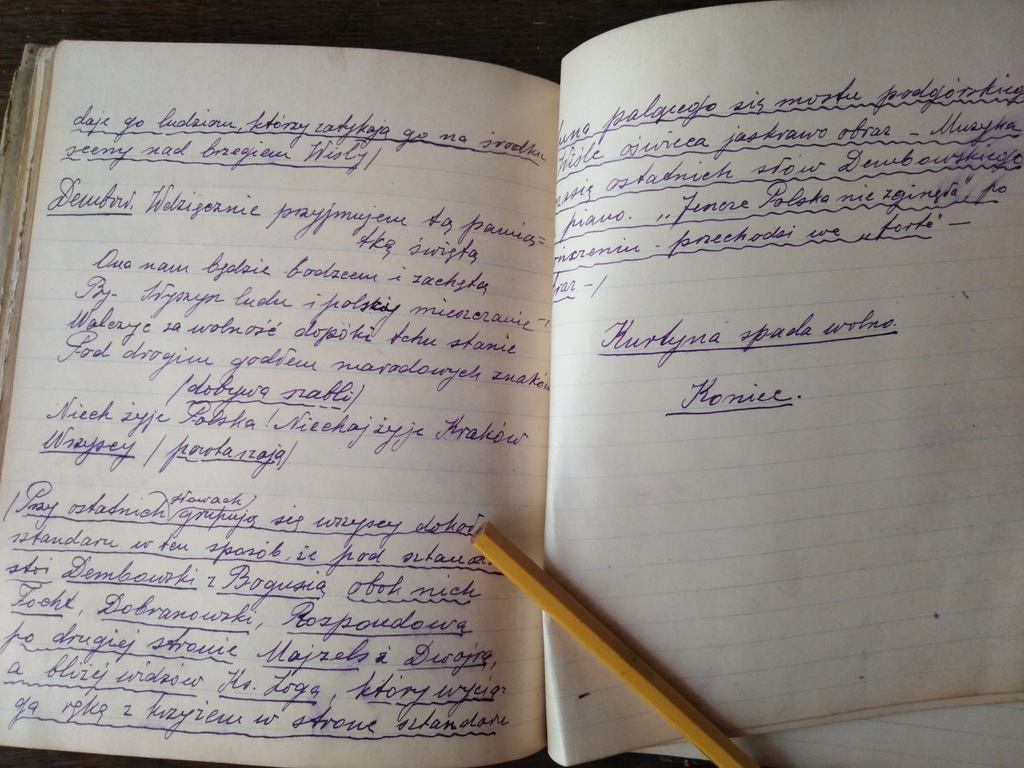 daje go ludziom, którzy zatykają go na środku
sceny nad brzegiem Wisły/
Dembow. Wdzięcznie przyjmujem tą pamią=
tkę świętą
Ona nam będzie bodzcem i zachętą
By- słyszysz ludu i polskiej mieszczanie-!
Walczyć za wolność dopóki tchu stanie
Pod drogim godłem narodowych znaków
/dobywa szabli/
Niech żyje Polska! Niechaj żyje Kraków
Wszyscy / powtarzają/
/Przy ostatnich słowach grupują się wszyscy dokoł
sztandaru w ten sposób, że pod sztanda
stoi Dembowski z Bogusią obok nich
Focht, Dobranowski, Rozpondowa
po drugiej stronie Majzels z Dwojrą,
a bliżej widzów Ks. Zoga, który wycią=
ga rękę z krzyżem w stronę sztandaru
una palącego się mostu podgórskiego
Wiśle oświeca jaskrawo obraz - Muzyka
ostatnich słów Dembowskiego
piano. "Jeszcze Polska nie zginęła" po
przechodzi we "forte" -
raz -/
Kurtyna spada wolno.
Koniec.